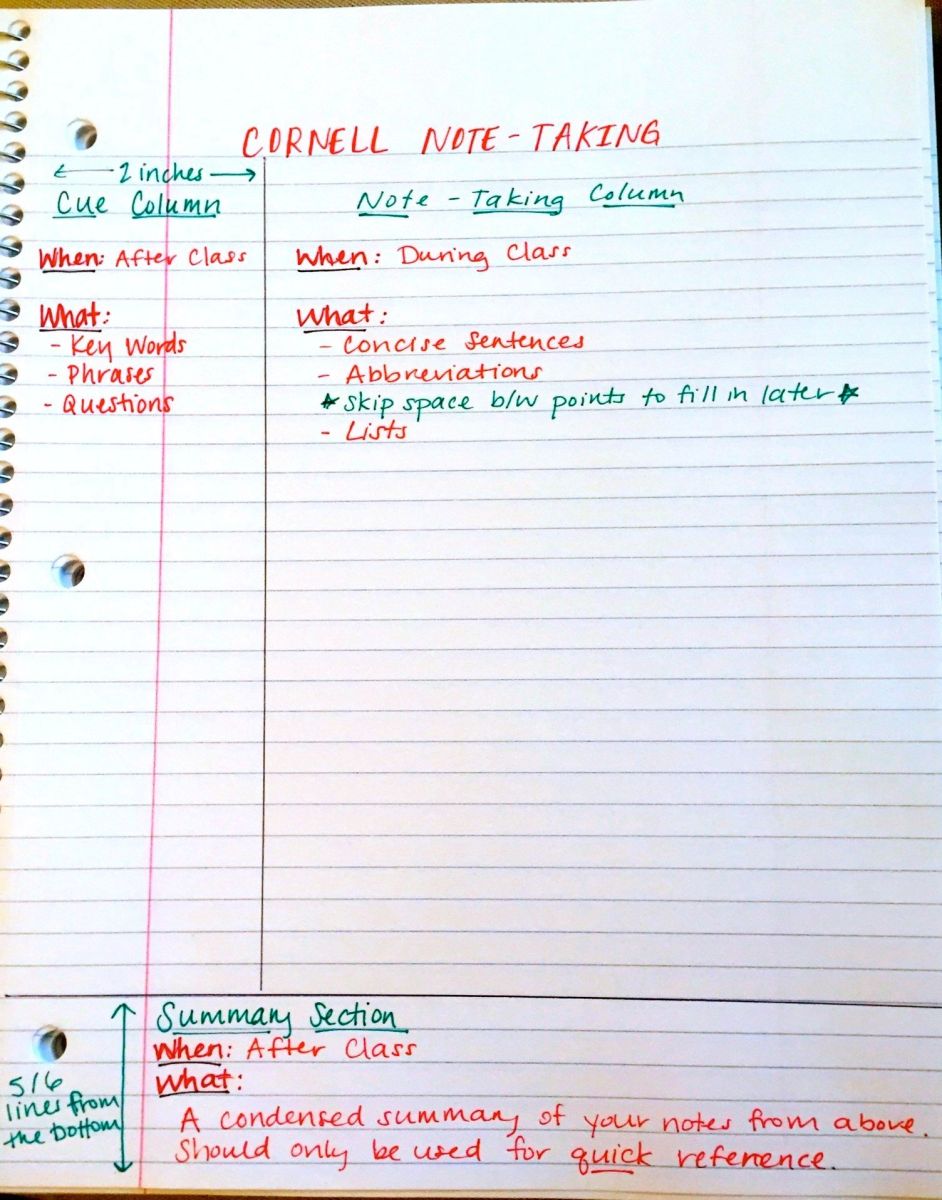 CORNELL NOTE-TAKING
← 2 inches →
Cue Column
When: After Class
What:
- Key Words
- Phrases
- Questions
Note - Taking Column
When: During Class
What:
- Concise Sentences
- Abbreviations
★ Skip space b/w points to fill in later ★
- Lists
Summary Section
When: After Class
What:
A condensed summary of your notes from above.
Should only be used for quick reference.
5/6
lines from
the bottom